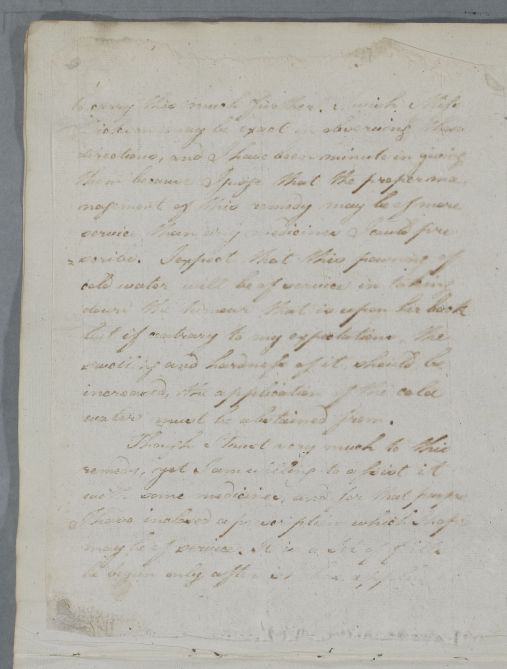 to carry this much further. I wish Miss
may be exact in observing these
directions, and I have been minute in giving
them because I judge that the proper ma
nagement of this remedy may be of more
service than any medicines I could pre
scribe. I expect that this pouring of
cold water will be of service in taking
down the tumour that is upon her back
but if contrary to my expectation, the
swelling and hardness of it should be
increased, the application of the cold
water must be abstained from.
Though I trust very much to this
remedy, yet I am willing to assist it
with some medicines, and for that purpose
I have inclosed a prescription which I hope
may be of service. It is a set of pills
to be begun only after